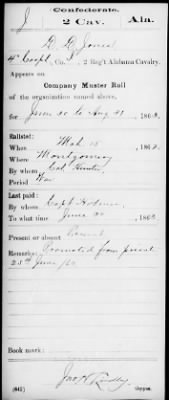 J Confederate.
2 Cav. Ala.
Jones
4" Corpl, Co. , 2 Reg't Alabama Cavalry.
Appears on
Company Muster Roll
of the organization named above,
for June 30 to Aug 31, 1862.
Enlisted:
When Mch 15, 1862.
Where Montgomery
By whom Col. Hunter
Period War
Last paid:
By whom Capt Holmes
To what time June 30, 1862.
Present or absent Present
Remarks: Promoted from privat
25th June/62
Book mark:
(642) Copyist.